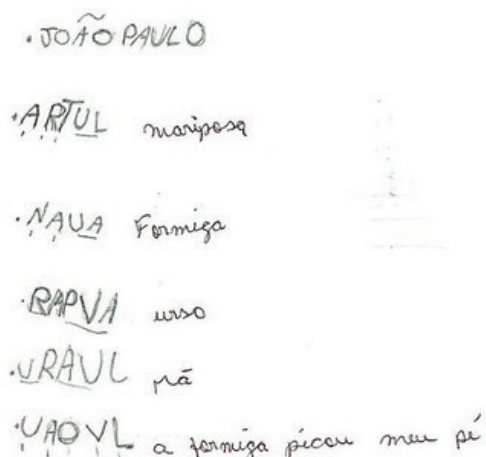 . JOÃO PAULO
. ARTUL mariposa
. NAUA Formiga
. RAPVA urso
. URAUL rã
. UAOVL a formiga picou meu pé